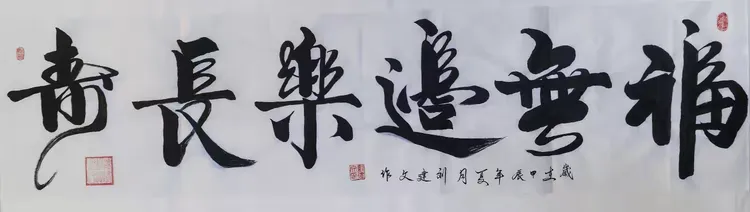 福無邊樂長壽
歲在甲辰年夏月刘建文作